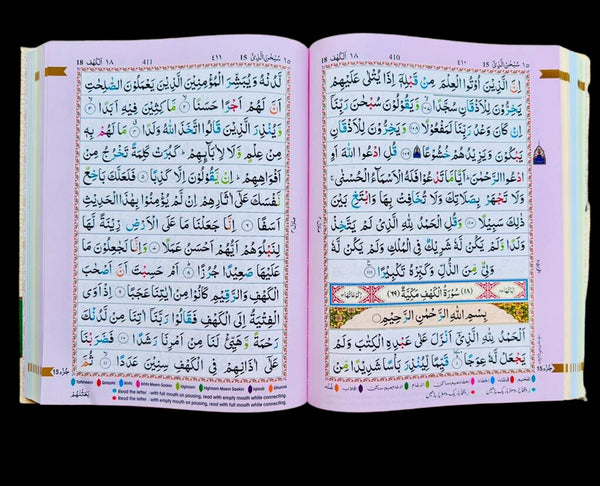 ١٥ سُبْحٰنَ الَّذِيْۤ 15 ٤١٠ 410 ١٨ اَلْكَهْف 18
اِنَّ الَّذِيْنَ اُوْتُوا الْعِلْمَ مِنْ قَبْلِهٖۤ اِذَا يُتْلٰى عَلَيْهِمْ
يَخِرُّوْنَ لِلْاَذْقَانِ سُجَّدًا ۙ﴿١٠٧﴾ وَّيَقُوْلُوْنَ سُبْحٰنَ رَبِّنَاۤ
اِنْ كَانَ وَعْدُ رَبِّنَا لَمَفْعُوْلًا ﴿١٠٨﴾ وَيَخِرُّوْنَ لِلْاَذْقَانِ
يَبْكُوْنَ وَيَزِيْدُهُمْ خُشُوْعًا ﴿١٠٩﴾ قُلِ ادْعُوا اللّٰهَ اَوِ
ادْعُوا الرَّحْمٰنَ ؕ اَيًّا مَّا تَدْعُوْا فَلَهُ الْاَسْمَآءُ الْحُسْنٰى ۚ
وَلَا تَجْهَرْ بِصَلَاتِكَ وَلَا تُخَافِتْ بِهَا وَابْتَغِ بَيْنَ
ذٰلِكَ سَبِيْلًا ﴿١١٠﴾ وَقُلِ الْحَمْدُ لِلّٰهِ الَّذِيْ لَمْ يَتَّخِذْ
وَلَدًا وَّلَمْ يَكُنْ لَّهٗ شَرِيْكٌ فِي الْمُلْكِ وَلَمْ يَكُنْ لَّهٗ
وَلِيٌّ مِّنَ الذُّلِّ وَكَبِّرْهُ تَكْبِيْرًا ﴿١١١﴾
(١٨) سُوْرَةُ الْكَهْفِ مَكِّيَّةٌ (٦٩)
بِسْمِ اللّٰهِ الرَّحْمٰنِ الرَّحِيْمِ
اَلْحَمْدُ لِلّٰهِ الَّذِيْۤ اَنْزَلَ عَلٰى عَبْدِهِ الْكِتٰبَ وَلَمْ
يَجْعَلْ لَّهٗ عِوَجًا ﴿١﴾ قَيِّمًا لِّيُنْذِرَ بَاْسًا شَدِيْدًا مِّنْ
جُزْء 15
١٥ سُبْحٰنَ الَّذِيْۤ 15 ٤١١ 411 ١٨ اَلْكَهْف 18
لَّدُنْهُ وَيُبَشِّرَ الْمُؤْمِنِيْنَ الَّذِيْنَ يَعْمَلُوْنَ الصّٰلِحٰتِ
اَنَّ لَهُمْ اَجْرًا حَسَنًا ﴿٢﴾ مَّاكِثِيْنَ فِيْهِ اَبَدًا ﴿٣﴾
وَّيُنْذِرَ الَّذِيْنَ قَالُوا اتَّخَذَ اللّٰهُ وَلَدًا ﴿٤﴾ مَا لَهُمْ بِهٖ
مِنْ عِلْمٍ وَّلَا لِاٰبَآئِهِمْ ؕ كَبُرَتْ كَلِمَةً تَخْرُجُ مِنْ
اَفْوَاهِهِمْ ؕ اِنْ يَّقُوْلُوْنَ اِلَّا كَذِبًا ﴿٥﴾ فَلَعَلَّكَ بَاخِعٌ
نَّفْسَكَ عَلٰۤى اٰثَارِهِمْ اِنْ لَّمْ يُؤْمِنُوْا بِهٰذَا الْحَدِيْثِ
اَسَفًا ﴿٦﴾ اِنَّا جَعَلْنَا مَا عَلَى الْاَرْضِ زِيْنَةً لَّهَا
لِنَبْلُوَهُمْ اَيُّهُمْ اَحْسَنُ عَمَلًا ﴿٧﴾ وَاِنَّا لَجٰعِلُوْنَ مَا
عَلَيْهَا صَعِيْدًا جُرُزًا ﴿٨﴾ اَمْ حَسِبْتَ اَنَّ اَصْحٰبَ
الْكَهْفِ وَالرَّقِيْمِ كَانُوْا مِنْ اٰيٰتِنَا عَجَبًا ﴿٩﴾ اِذْ اَوَى
الْفِتْيَةُ اِلَى الْكَهْفِ فَقَالُوْا رَبَّنَاۤ اٰتِنَا مِنْ لَّدُنْكَ
رَحْمَةً وَّهَيِّئْ لَنَا مِنْ اَمْرِنَا رَشَدًا ﴿١٠﴾ فَضَرَبْنَا
عَلٰۤى اٰذَانِهِمْ فِي الْكَهْفِ سِنِيْنَ عَدَدًا ﴿١١﴾ ثُمَّ
بَعَثْنٰهُمْ
جُزْء 15
Tafkheem Qalqala Ikhfa Ikhfa Meem Saakin Idgham Idgham Meem Saakin Iqlaab Ghunna
Read the letter: with full mouth on pausing, read with empty mouth while connecting.
Read the letter: with empty mouth on pausing, read with full mouth while connecting.